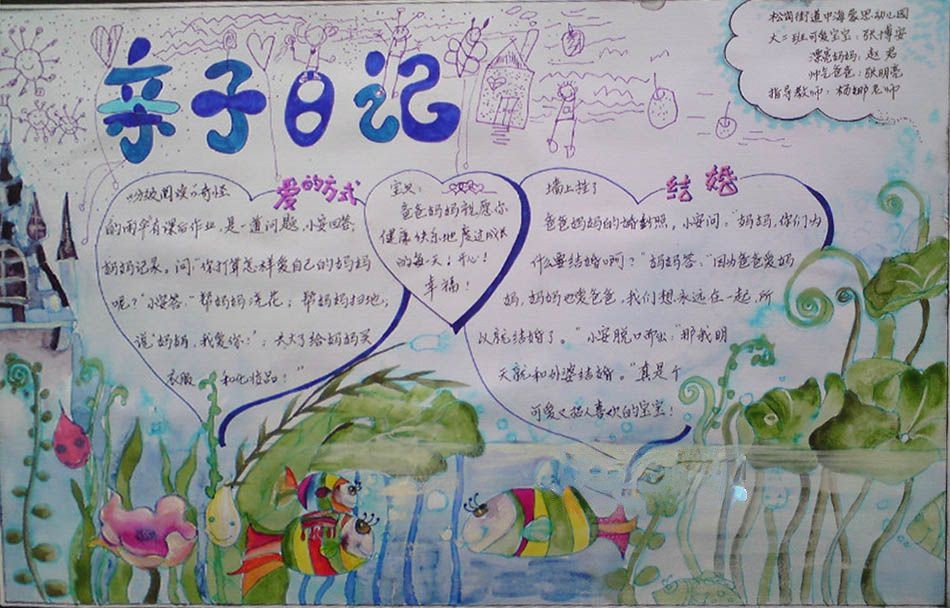 亲子日记
松岗街道中海西岸幼儿园
大二班可爱宝宝:张博安
漂亮妈妈:赵君
帅气爸爸:张明亮
指导教师:杨娜老师
爱的方式
分级阅读《奇怪
的雨伞》有课后作业,是一道问题,小安回答,
妈妈记录。问"你打算怎样爱自己的妈妈
呢?"小安答:"帮妈妈浇花;帮妈妈扫地;
说'妈妈,我爱你!';长大了给妈妈买
衣服 和化妆品!"
宝贝:
爸爸妈妈祝愿你
健康快乐地度过成长
的每一天!开心!
幸福!
结婚
墙上挂了
爸爸妈妈的婚纱照,小安问:"妈妈,你们为
什么要结婚啊?"妈妈答:"因为爸爸爱妈
妈,妈妈也爱爸爸,我们想永远在一起,所
以就结婚了。"小安脱口而出:"那我明
天就和外婆结婚。"真是个
可爱又招人喜欢的宝宝!